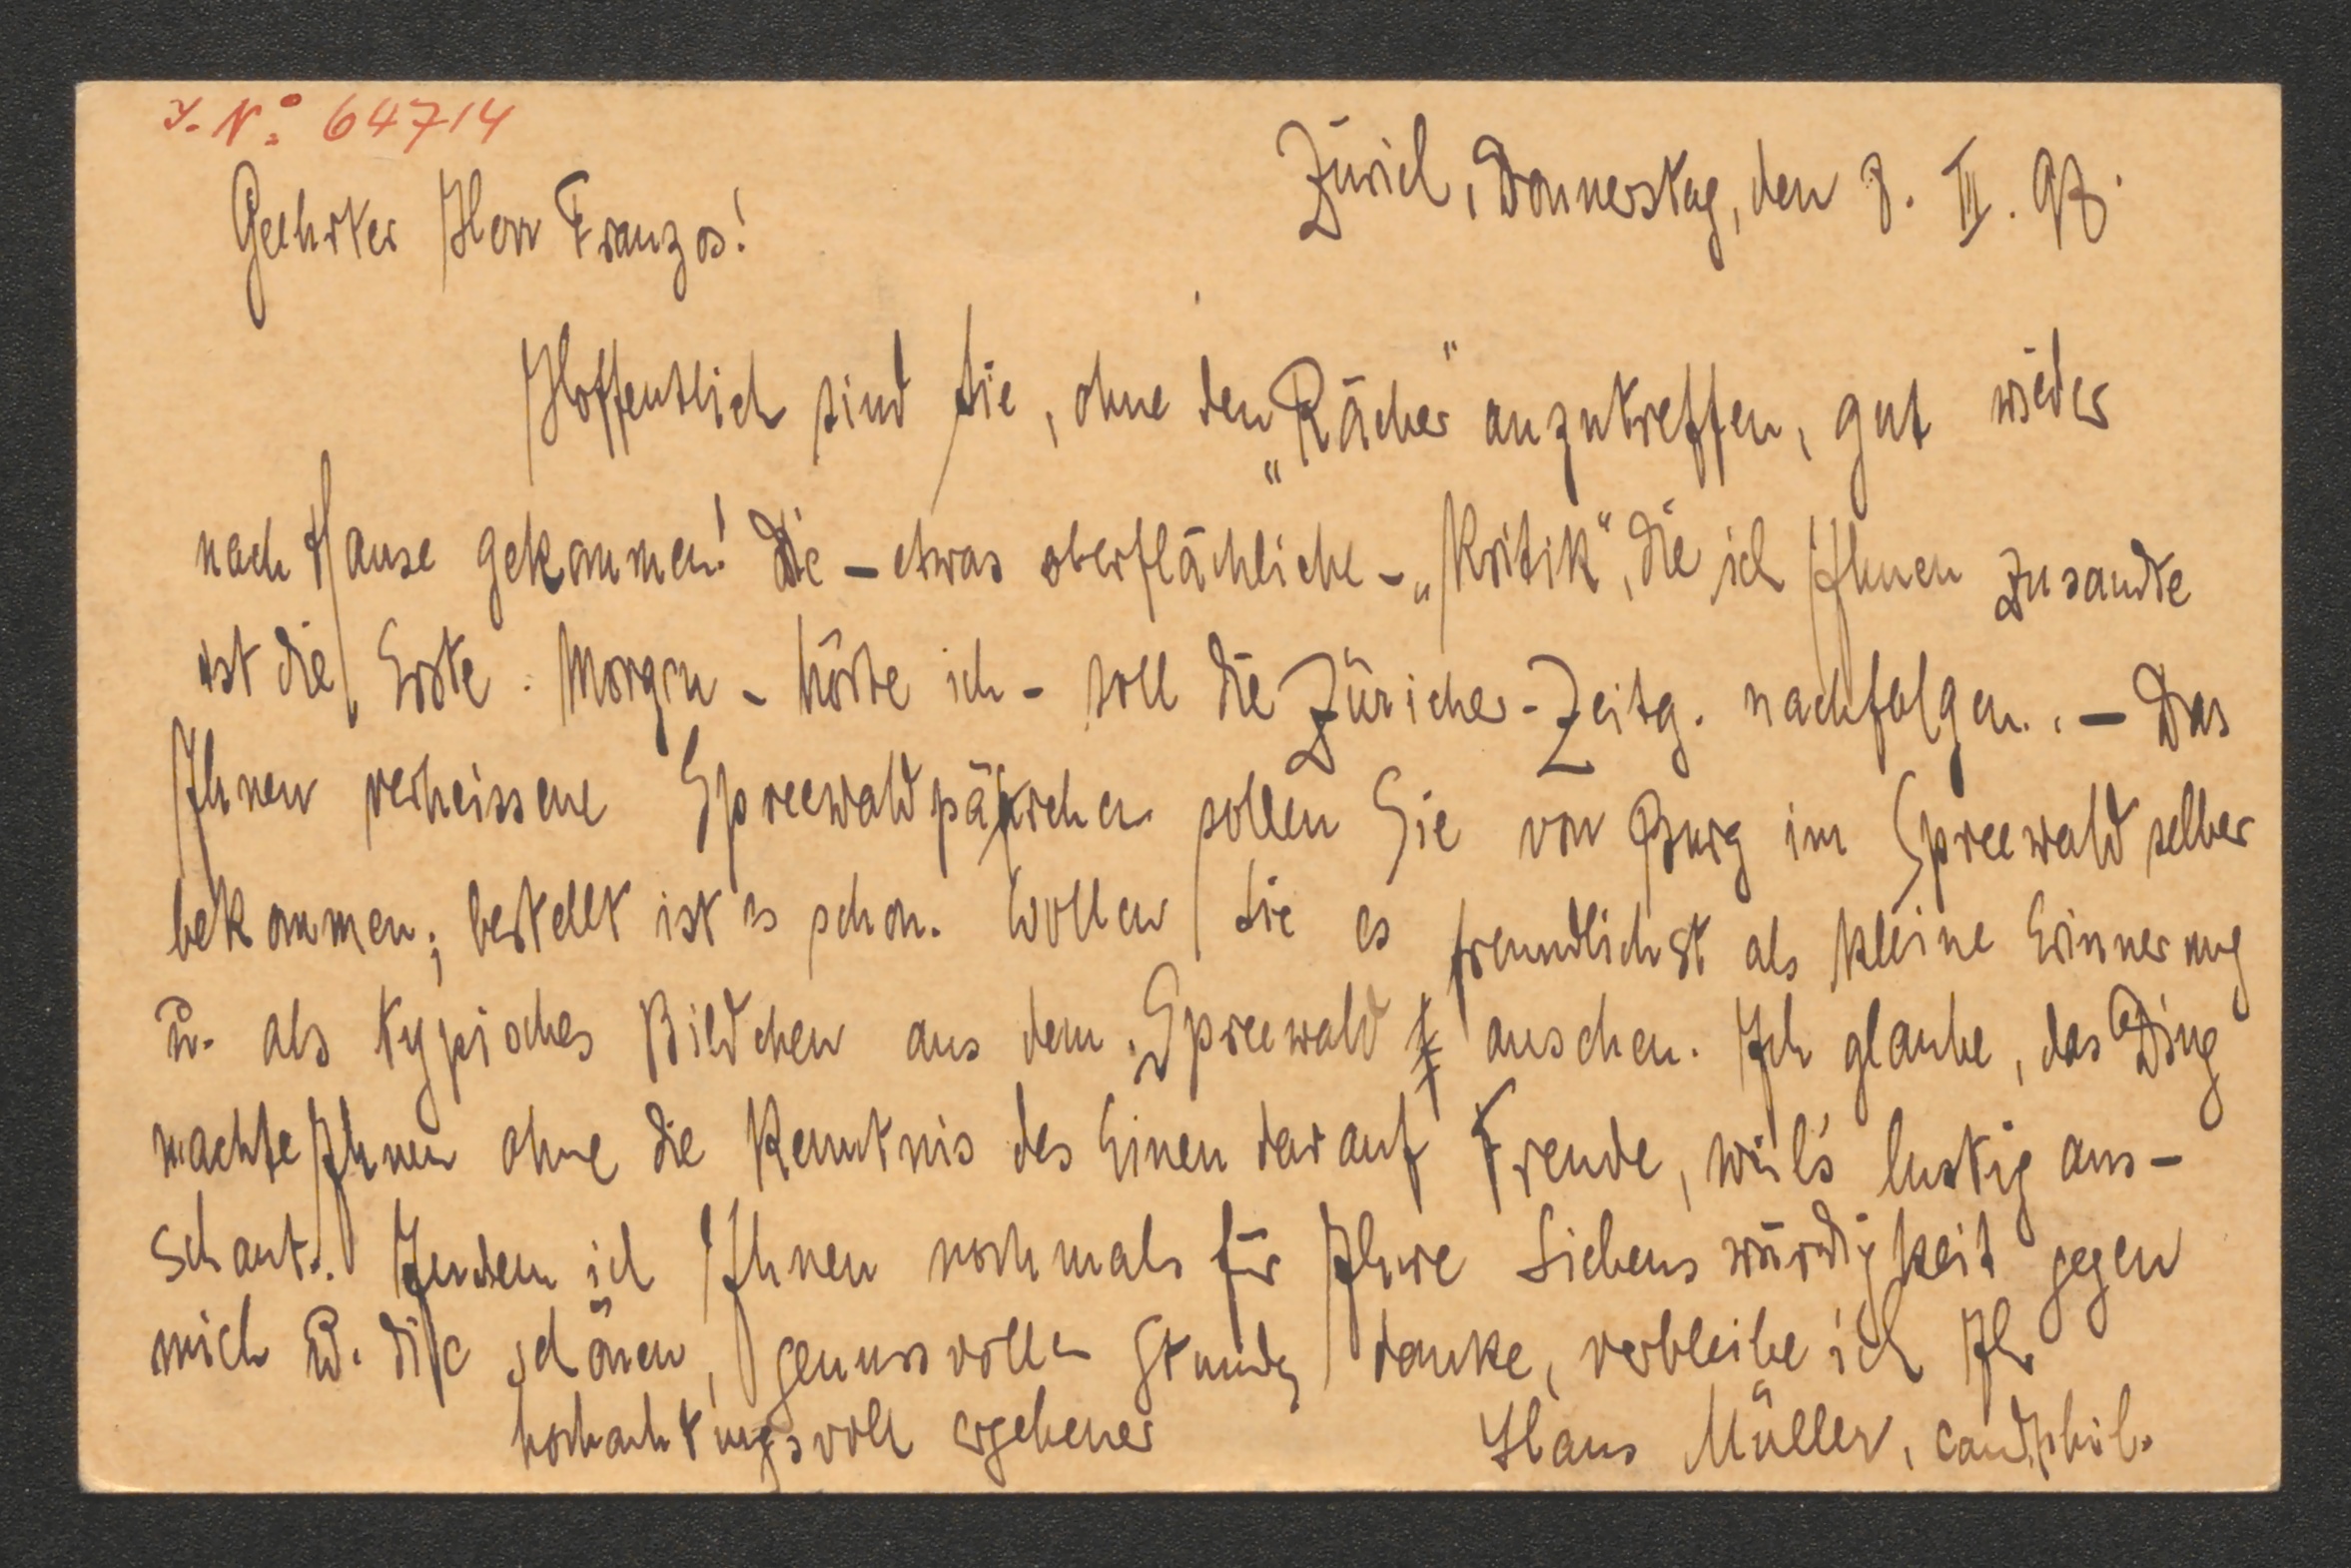 J. N: 64714
Zürich, Donnerstag, den 3. III. 98.
Geehrter Herr Franzos!
Hoffentlich sind Sie, ohne den „Rächer" anzutreffen, gut wieder
nach Hause gekommen! Die – etwas oberflächliche – „Kritik", die ich Ihnen zusandte
ist die Erste. Morgen – hörte ich – soll die Züricher-Zeitg. nachfolgen. – Das
Ihnen verheissene Spreewaldpärchen sollen Sie von Burg im Spreewald selber
bekommen; bestellt ist es schon. Wollen Sie es freundlichst als kleine Erinnerung
u. als typisches Bildchen aus dem Spreewald ansehen. Ich glaube, das Ding
machte Ihnen ohne die Kenntnis des Einen darauf Freude, weil's lustig aus-
schaut. Indem ich Ihnen nochmals für Ihre Liebenswürdigkeit gegen
mich u. die schönen, genussvollen Stunden danke, verbleibe ich Ihr
hochachtungsvoll ergebener Hans Müller, cand. phil.